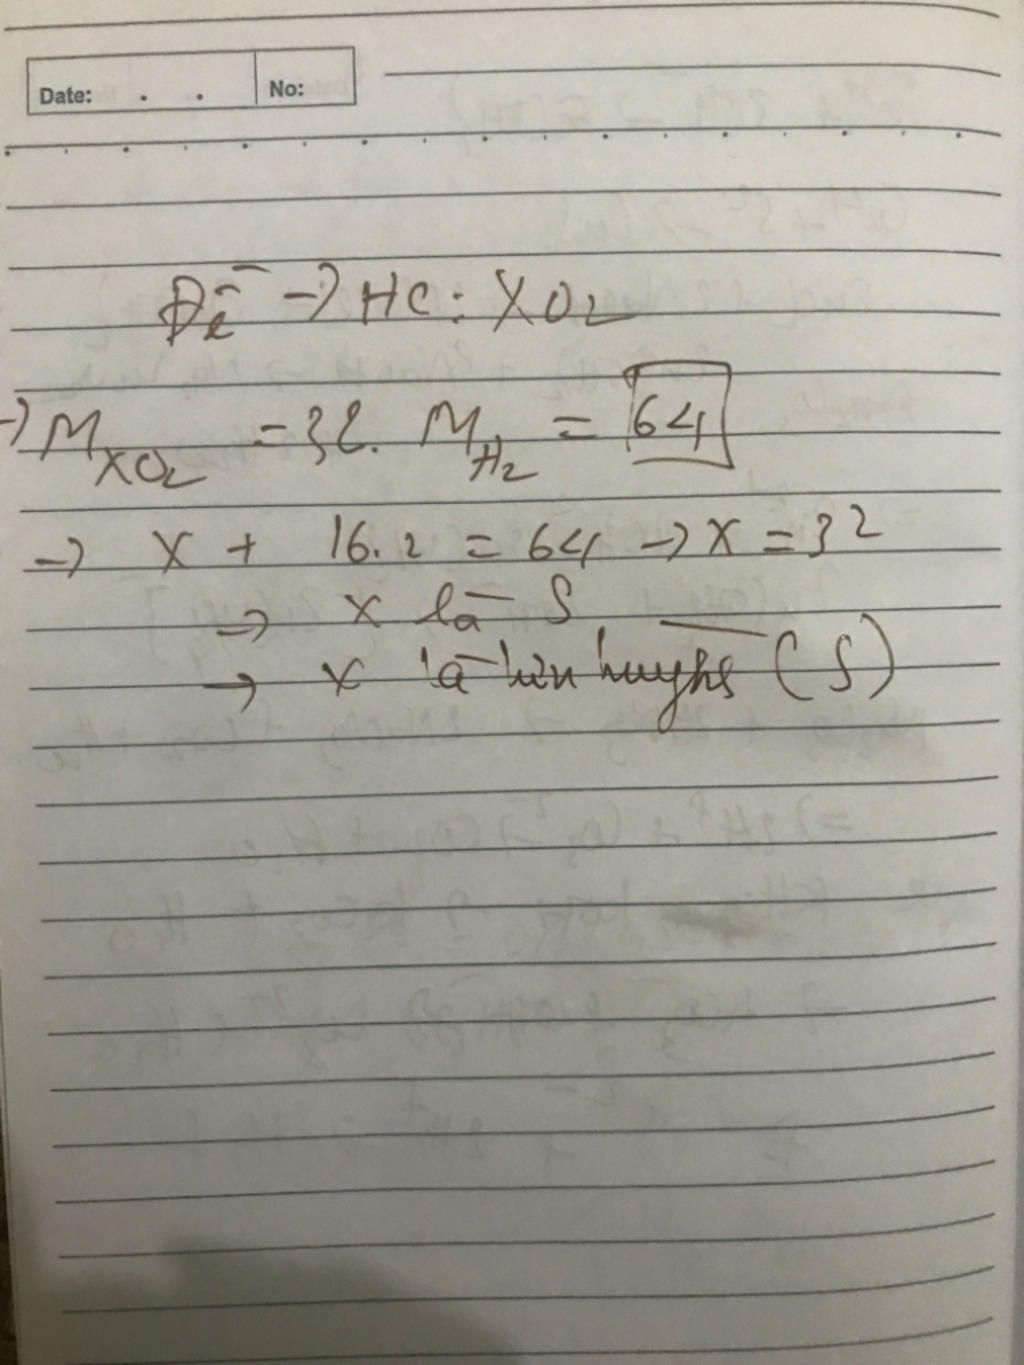 Date: . . No:
Đề -> HC: XO2
-> M XO2 = 32. M H2 = 64
-> X + 16.2 = 64 -> X = 32
-> X là S
-> X là lưu huỳnh (S)